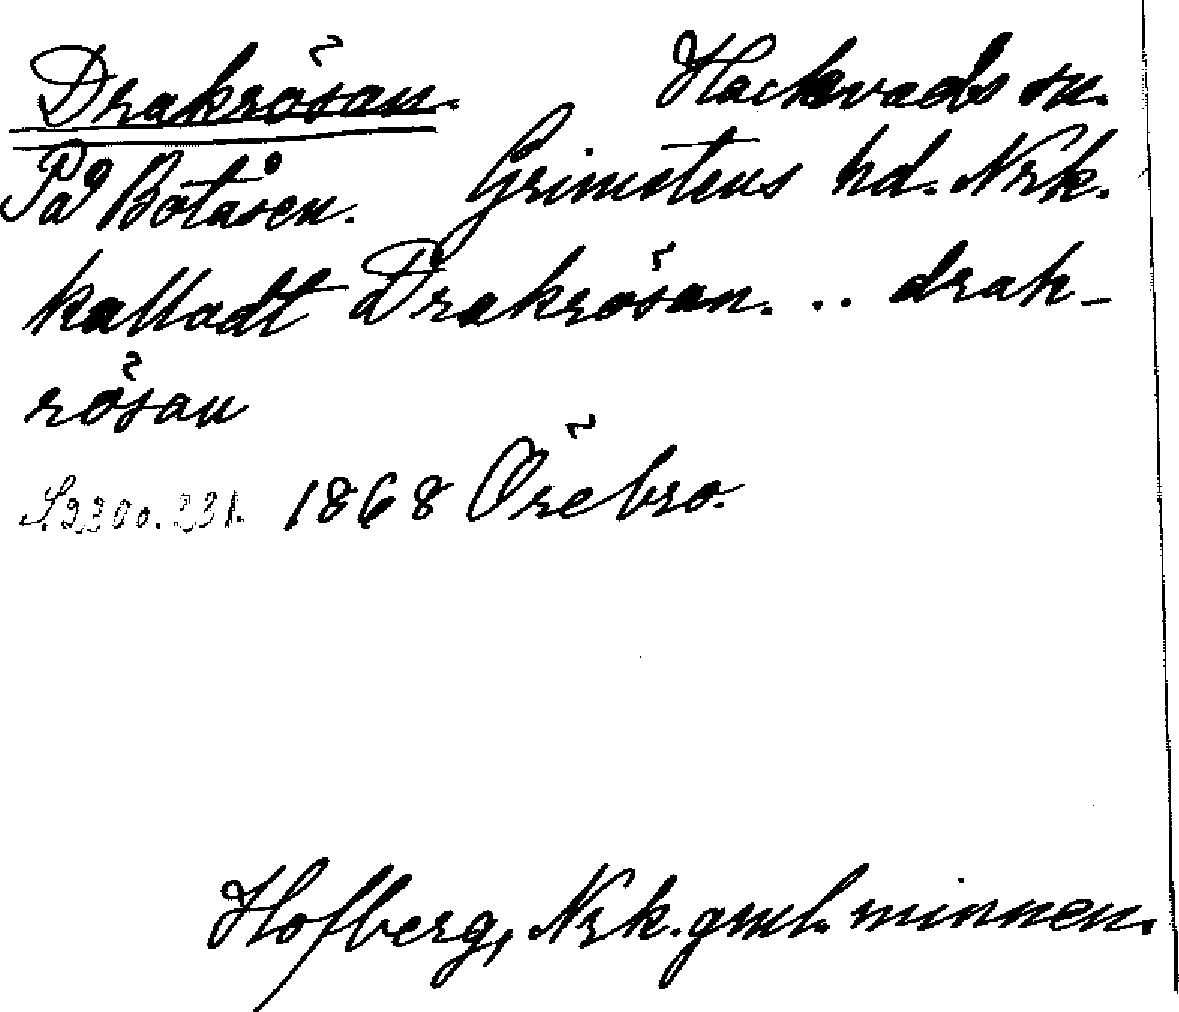 Drakrösan. Hackvads sn.
På Botåsen. Grimstens hd. Nrk.
kalladt Drakrösan. .. drak-
rösan
S. 230 o. 231. 1868 Örebro.
Hofberg, Nrk. gml. minnen.